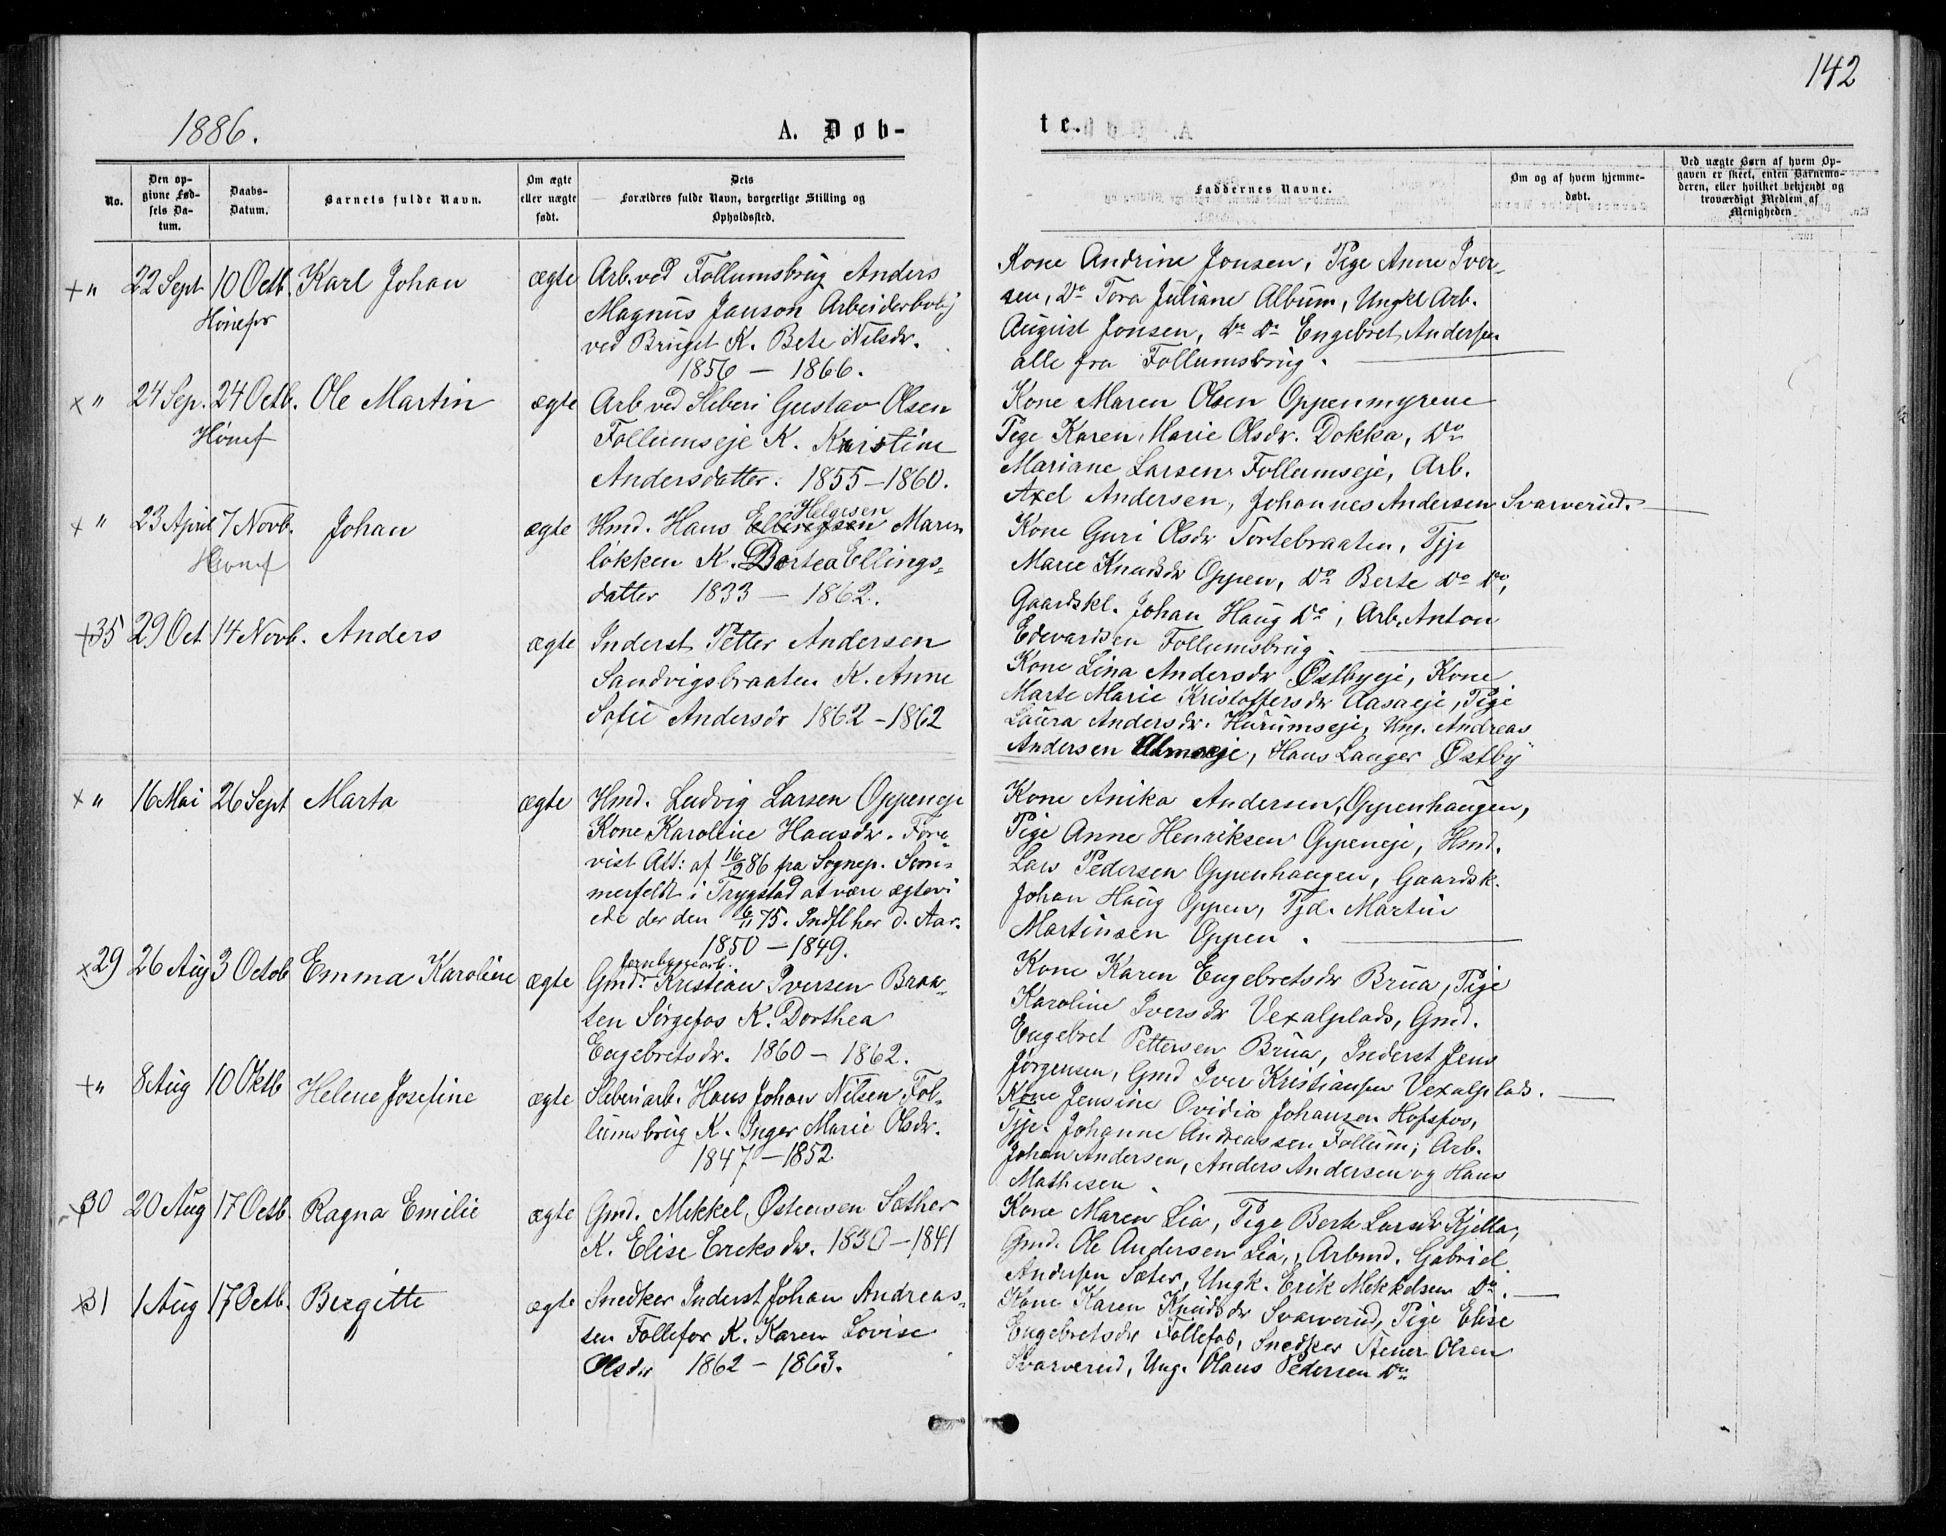 142
1886.
A. Døb-
te.
No.
Den op-
givne Fød-
sels Da-
tum.
Daabs-
Datum.
Barnets fulde Navn.
Om ægte
eller uægte
født.
Dets
Forældres fulde Navn, borgerlige Stilling og
Opholdssted.
Faddernes Navne.
Om og af hvem hjemme-
døbt.
Ved uægte Børn af hvem Op-
gaven er skeet, enten Barnemo-
deren, eller hvilket bekjendt og
troværdigt Medlem af
Menigheden
+ " 22 Sept 10 Octb. Karl Johan ægte Arb. ved Follumsbrug Anders
Hönefos
Magnus Janson Arbeiderbolig
ved Bruget K. Bete Nilsdr.
1856 — 1866.
Kone Andrine Jonsen, Pige Anne Iver-
sen, Do Tora Juliane Album, Ungkl Arb.
August Jonsen, Do Do Engebret Andersen
alle fra Follumsbrug.
x " 24 Sep. 24 Octb. Ole Martin ægte Arb ved Sleberi Gustav Olsen
Hönef
Follumseje K. Kristine
Andersdatter. 1855 – 1860.
Kone Maren Olsen Oppenmyrene
Pige Karen Marie Olsdr. Dokka, Do
Mariane Larsen Follumseje, Arb.
Axel Andersen, Johannes Andersen Svarverud.
+ " 23 April 7 Novb. Johan ægte Hmd. Hans Ellingsen Maren
Helgesen
Hönef
lökken K. Bortea Ellings-
datter 1833 — 1862.
Kone Guri Olsdr Tortebraaten, Tjp
Marie Knudsdr Oppen, Do Berte Do Do,
Gaardskl. Johan Haug Do, Arb. Anton
Edevardsen Follumsbrug.
+35 29 Oct. 14 Novb. Anders ægte Inderst Petter Andersen
Sandvigsbraaten K. Anne
Sofie Andersdr 1862 – 1862
Kone Lina Andersdr Østbyeje, Kone
Marte Marie Kristoffersdr Aasaeje, Pige
Laura Andersdr. Hurumseje, Ung. Andreas
Andersen Almseje, Hans Langer Østby
x " 16 Mai 26 Sept Marta ægte Hmd. Ludvig Larsen Oppeneje
Kone Karoline Hansdr. Fore-
vist Att: af 16/2 86 fra Sognep. Som-
merfeldt i Trygstad at være ægtevi
ede der den 6/11 75. Indfl her d. Aar.
1850 – 1849.
Kone Anika Andersen, Oppenhaugen,
Pige Anne Henriksen Oppeneje, Hmd.
Lars Pedersen Oppenhaugen, Gaardsk.
Johan Haug Oppen, Tjd. Martin
Martinsen Oppen.
x29 26 Aug 3 Octob Emma Karoline ægte Gmd. Kristian Iversen Braa-
ten Sörgefos K. Dorthea
Engebretsdr. 1860 – 1862.
Kone Karen Engebretsdr Brua, Pige
Karoline Iversdr Vexalplads, Gmd.
Engebret Pettersen Brua, Inderst Jens
Jörgensen, Gmd Iver Kristiansen Vexalplads.
+" 8 Aug 10 Oktb Helene Josefine ægte Sleberiarb. Hans Johan Nilsen Fol-
lumsbrug K. Inger Marie Olsdr.
1847 – 1852
Kone Jensine Ovidia Johansen Hofsfos,
Tjp. Johanne Andreassen Follum, Arb.
Johan Andersen, Anders Andersen og Hans
Mathisen.
x30 20 Aug 17 Octb. Ragna Emilie ægte Gmd. Mikkel Østensen Sæther
K. Elise Eriksdr. 1830 – 1841
Kone Maren Lia, Pige Berte Larsdr Kjella,
Gmd. Ole Andersen Lia, Arbmd. Gabriel
Andersen Sæter, Ungk. Erik Mikkelsen Do.
x31 1 Aug 17 Octb. Birgitte ægte Snedker Inderst Johan Andreas-
sen Follefos K. Karen Lovise
Olsdr 1862 – 1863.
Kone Karen Knudsdr Svarverud, Pige Elise
Engebretsdr Follefos, Snedker Stener Olsen
Svarverud, Ung. Olaus Pedersen Do